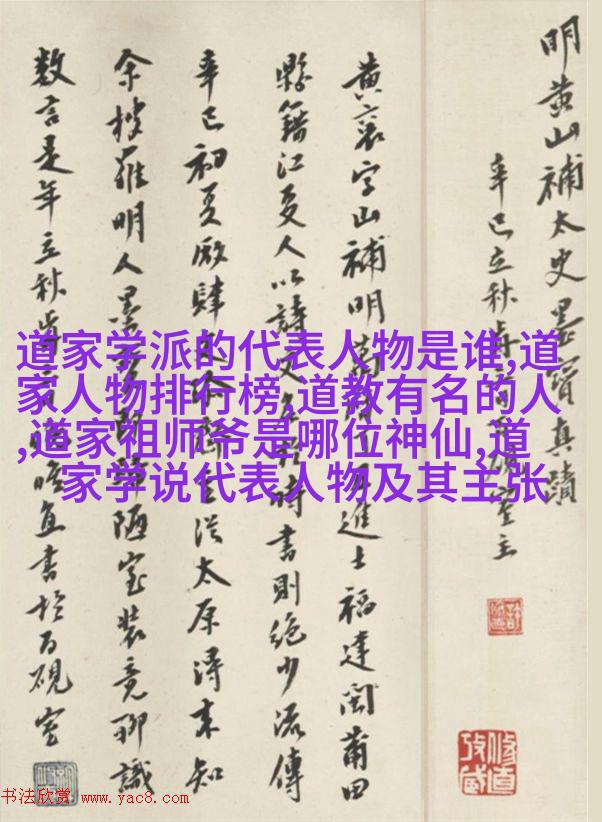 明黄山補太史墨蹟真蹟
辛巳立秋
室主
黄襄字山補明
進士福建閩莆田
縣籍江夏人以詩文
時書則绝少流傳
辛巳初夏廠肆
從太原潯来知
余搜羅明人墨
陋室装竟聊識
數言是年立秋
書於百硯室
道家学派的代表人物是谁,道
家人物排行榜,道教有名的人
,道家祖师爷是哪位神仙,道
家学说代表人物及其主张
书法欣赏 www.yac8.com